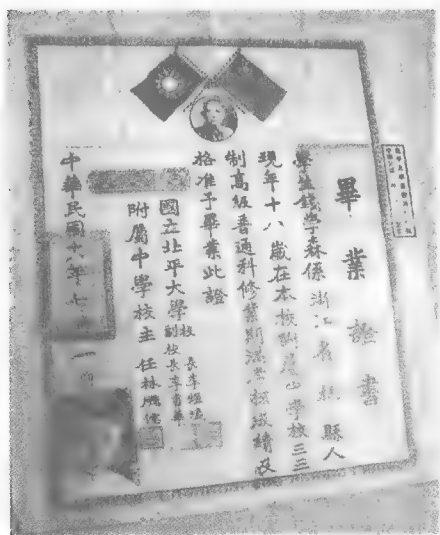 畢業證書
學生錢學森係浙江省杭縣人
現年十八歲在本校附屬中學校三三
制高級普通科修業期滿考核成績及
格准予畢業此證
國立北平大學校長李煜瀛
副校長李書華
附屬中學校主任林礪儒
中華民國十八年七月 一日